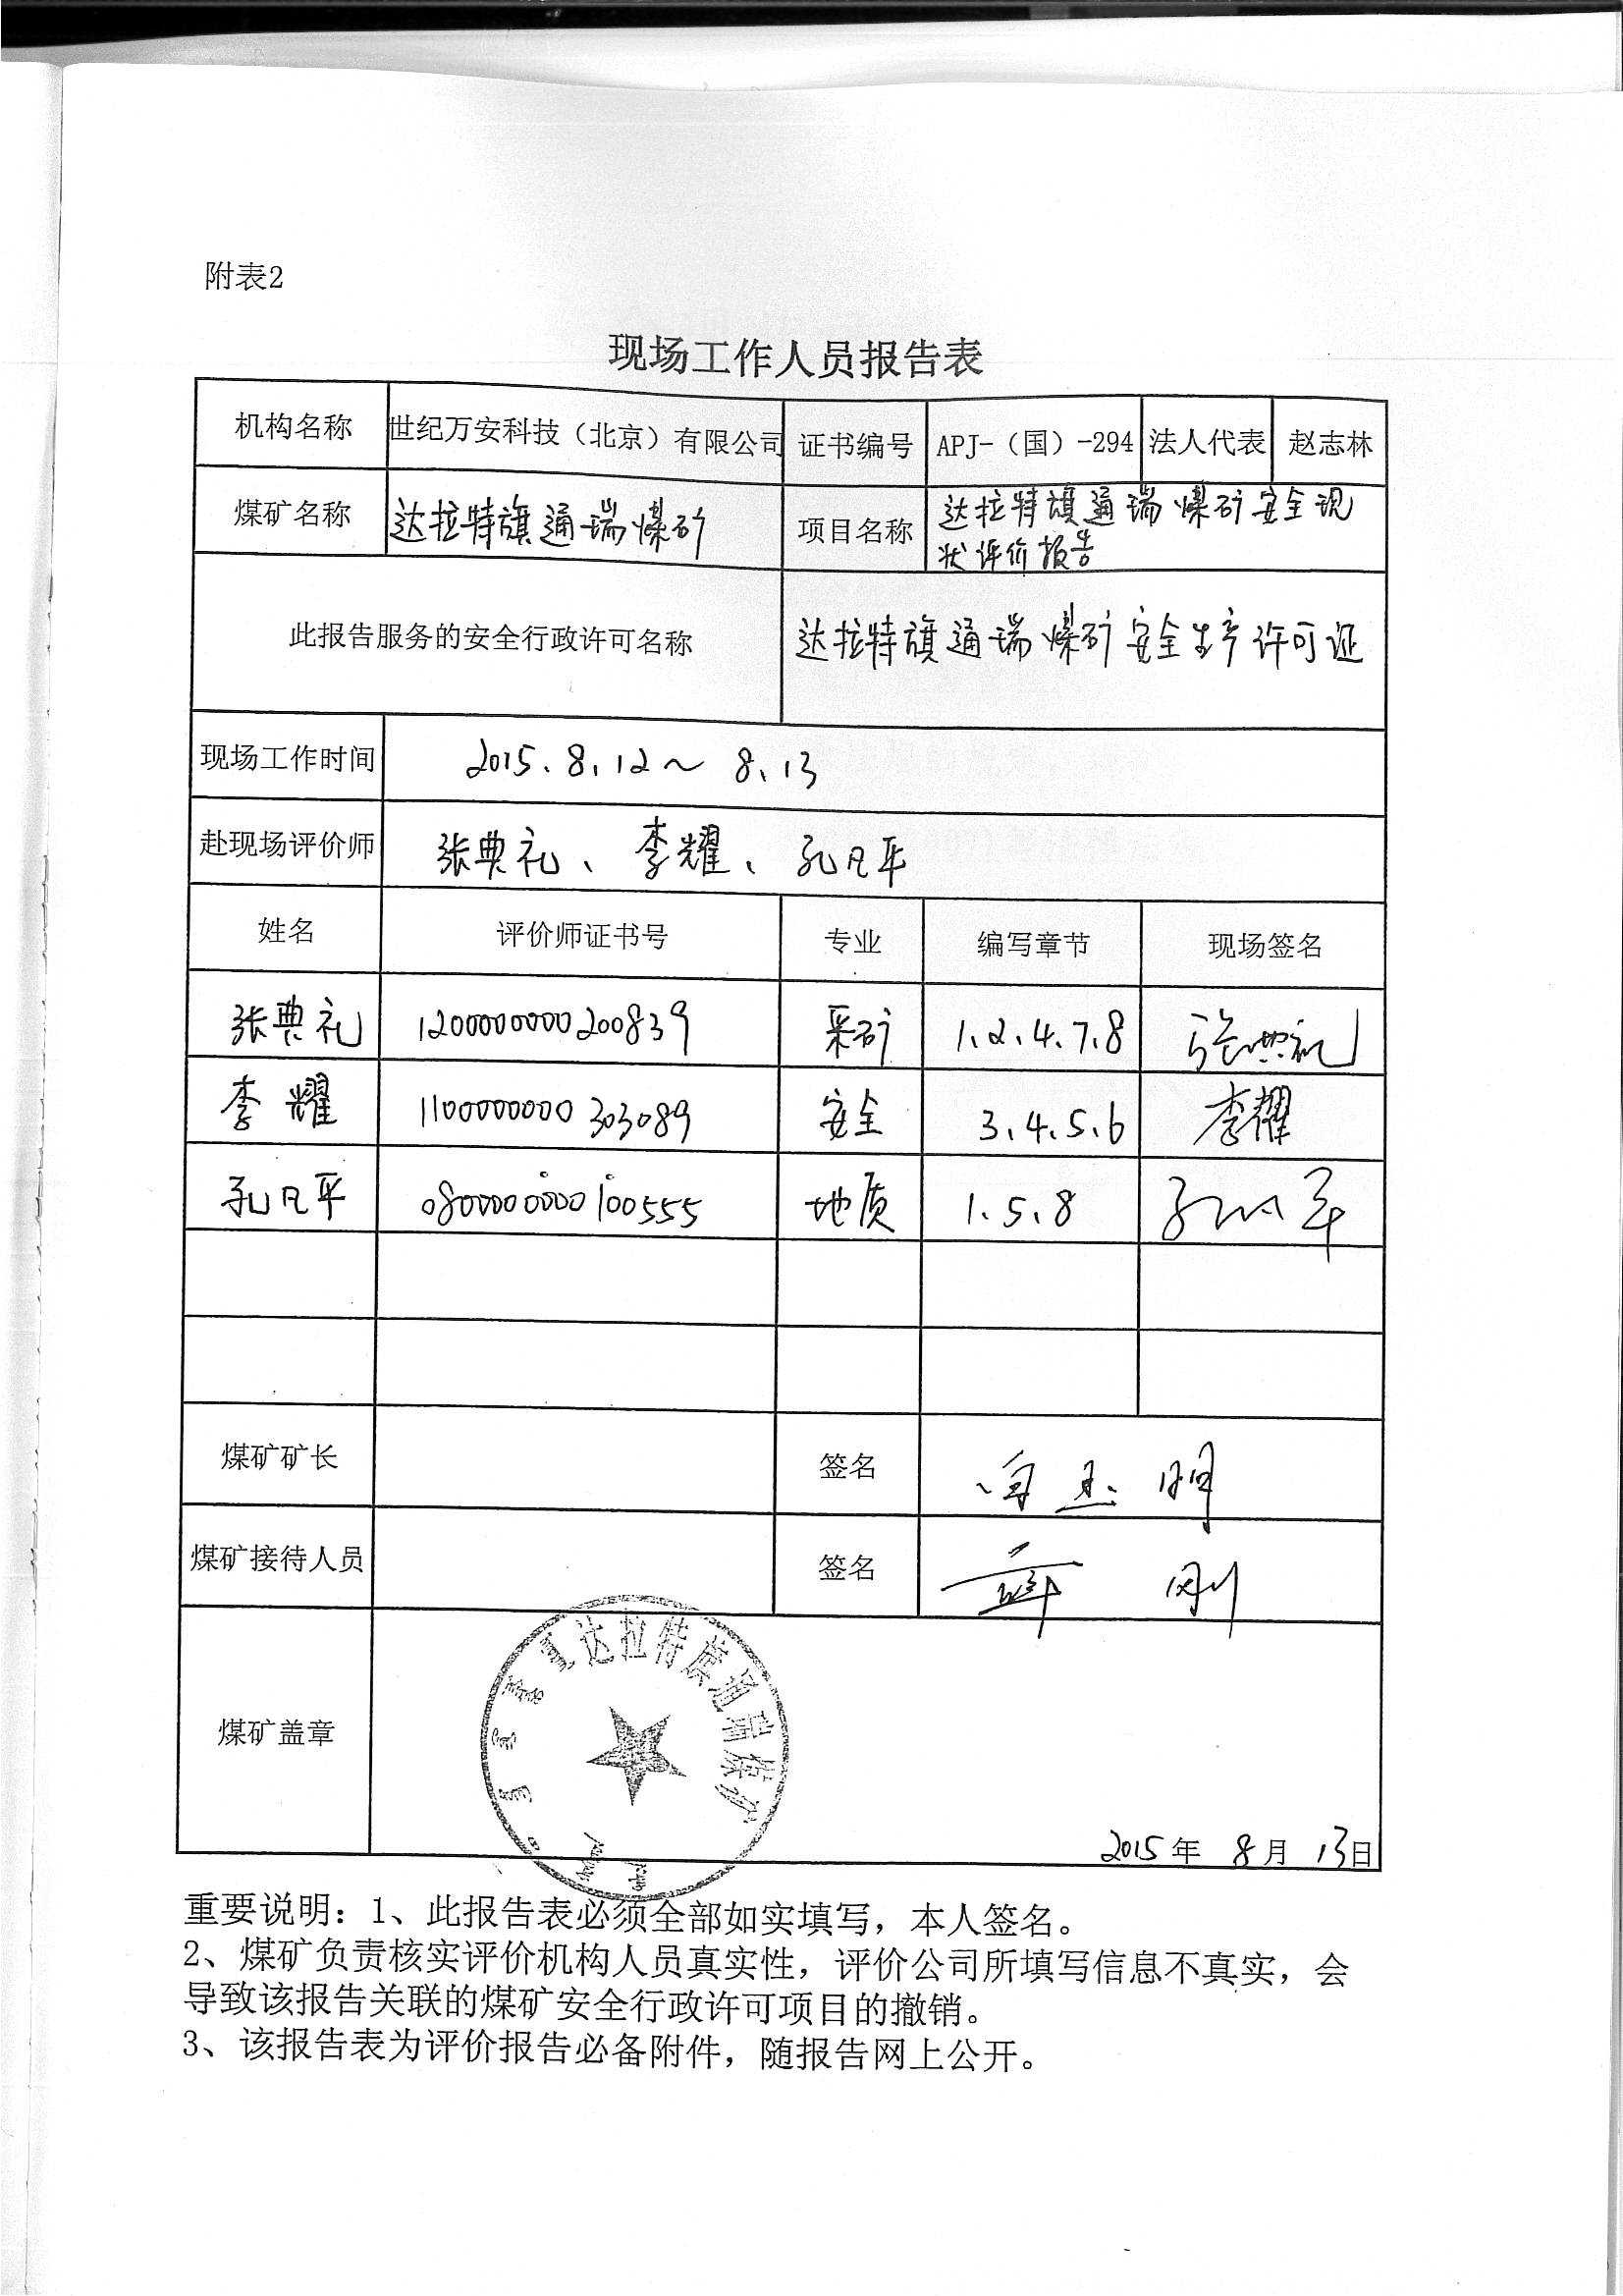 附表2
现场工作人员报告表
机构名称 世纪万安科技（北京）有限公司 证书编号 APJ-（国）-294 法人代表 赵志林
煤矿名称 达拉特旗通瑞煤矿 项目名称 达拉特旗通瑞煤矿安全现
状评价报告
此报告服务的安全行政许可名称 达拉特旗通瑞煤矿安全生产许可证
现场工作时间 2015.8.12～8.13
赴现场评价师 张典礼、李耀、孔凡平
姓名 评价师证书号 专业 编写章节 现场签名
张典礼 1200000000200839 采矿 1.2.4.7.8 张典礼
李耀 1100000000303089 安全 3.4.5.6 李耀
孔凡平 0800000000100555 地质 1.5.8 孔凡平
煤矿矿长 签名
煤矿接待人员 签名 薛刚
煤矿盖章
达拉特旗通瑞煤矿
2015年 8月 13日
重要说明：1、此报告表必须全部如实填写，本人签名。
2、煤矿负责核实评价机构人员真实性，评价公司所填写信息不真实，会
导致该报告关联的煤矿安全行政许可项目的撤销。
3、该报告表为评价报告必备附件，随报告网上公开。